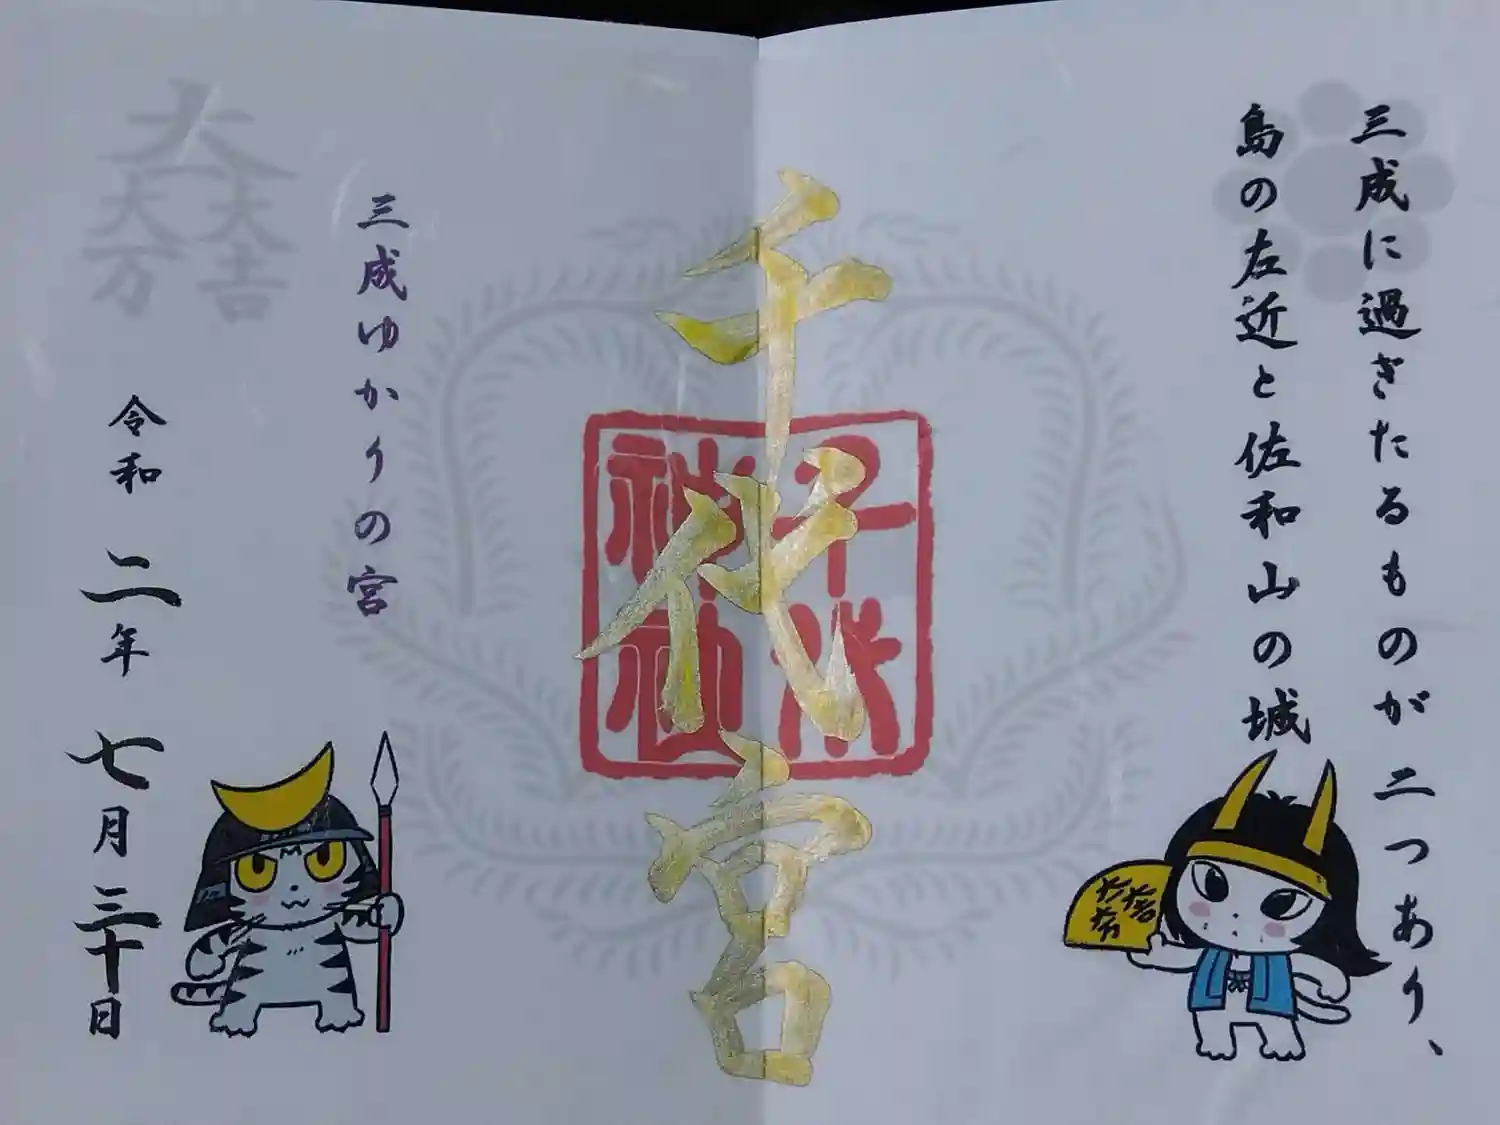 三成に過ぎたるものが二つあり、
島の左近と佐和山の城
千代宮
千代
神社
三成ゆかりの宮
令和二年七月三十日
大
大 大
万 吉
大一大万大吉